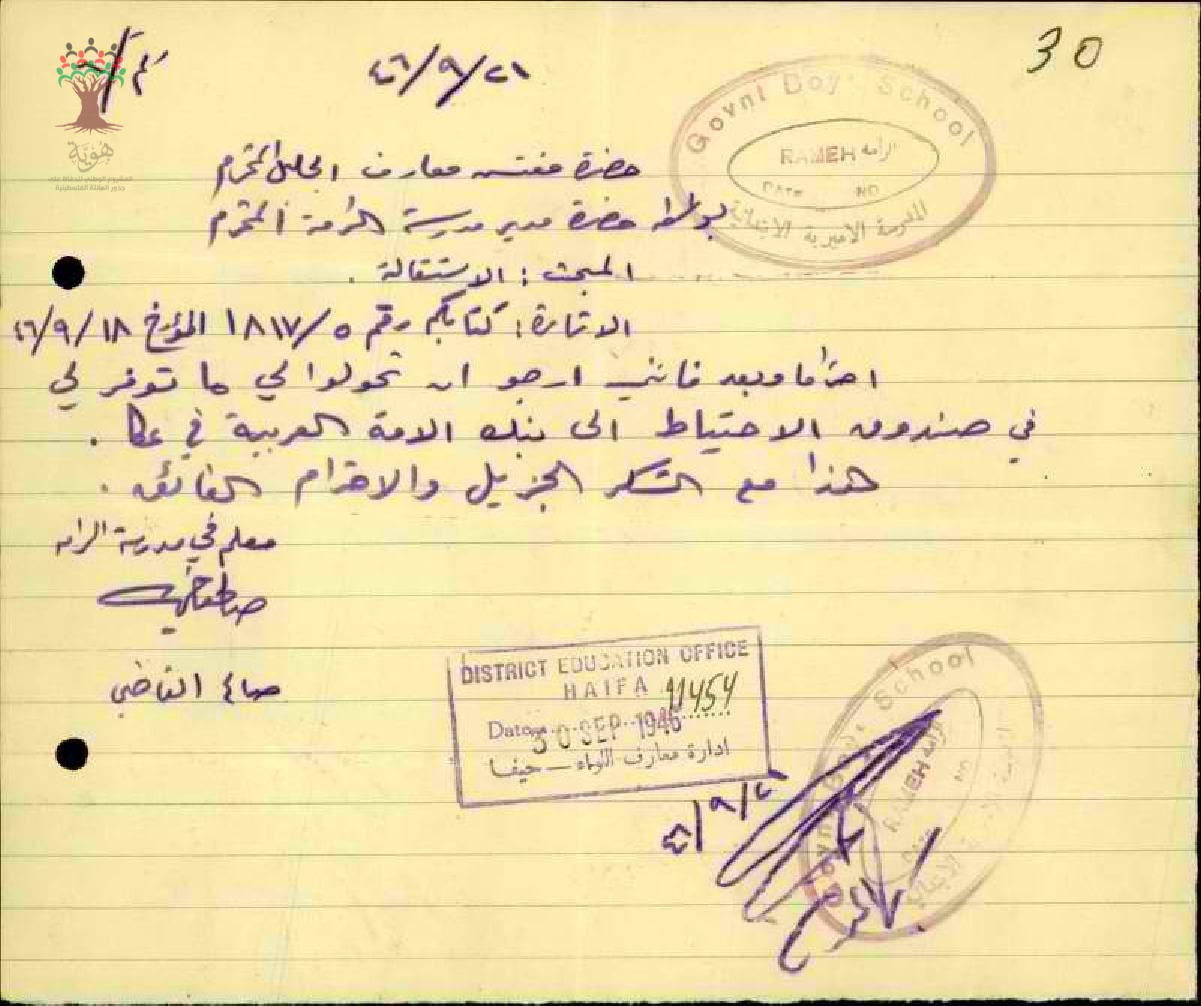 30
٤٦/٩/٢١
Govnt Boys School
RAMEH الرامه
DATE NO
المدرسة الاميرية الابتدائية
هويّة
المشروع الوطني للحفاظ على
جذور العائلة الفلسطينية
حضرة مفتش معارف الجليل المحترم
بواسطة حضرة مدير مدرسة الرامة المحترم
المبحث : الاستقالة .
الاشارة : كتابكم رقم ١٨١٧/٥ المؤرخ ٤٦/٩/١٨
احتراما وبعد فانني ارجو ان تحولوا لي ما توفر لي
في صندوق الاحتياط الى بنك الامة العربية في عكا .
هذا مع الشكر الجزيل والاحترام الفائق .
معلم في مدرسة الرامه
صالح القاضي
DISTRICT EDUCATION OFFICE
HAIFA 11454
Date 30 SEP 1946
ادارة معارف اللواء – حيفا
Govnt Boys School
RAMEH الرامه
DATE NO